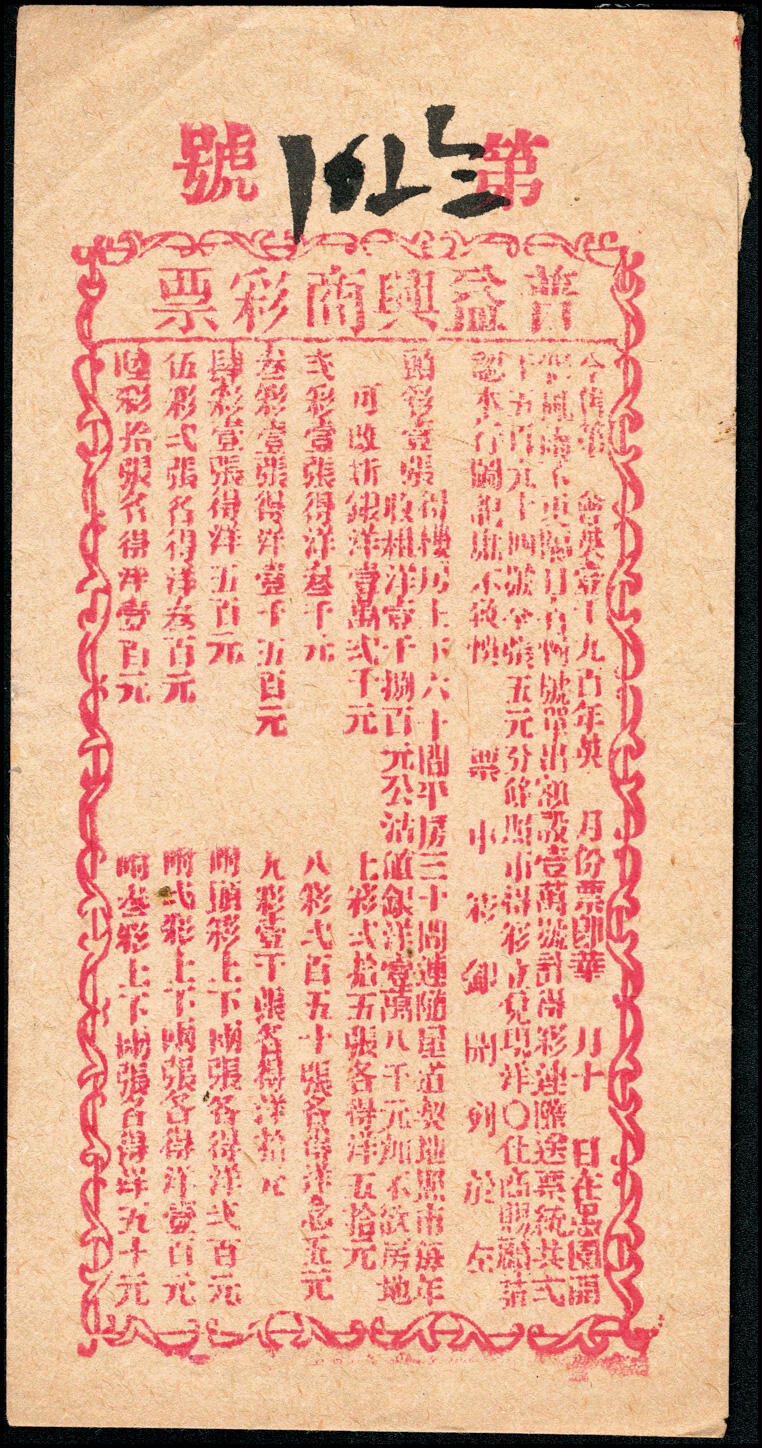 第 號
普益興商彩票
今售第 會英壹千九百年英 月份票即華 月十 日在愚園開
號單出額設壹萬號計得彩連匯送票統共弍
十五百元十四號全張五元分條照市得彩立兌現洋〇仕商賜顧
認本行圖記庶不致悞 票中彩 開列於左
頭彩壹張得樓房上下六十間平房三十間連隨屋道契地照市每年
收租洋壹千捌百元公沽值銀洋壹萬八千元如不欲房地
可改折銀洋壹萬弍千元
弍彩壹張得洋叁千元
叁彩壹張得洋壹千五百元
肆彩壹張得洋五百元
伍彩弍張各得洋叁百元
陸彩拾張各得洋壹百元
七彩弍拾五張各得洋五拾元
八彩弍百五十張各得洋念五元
九彩壹千張各得洋拾元
附頭彩上下兩張各得洋弍百元
附弍彩上下兩張各得洋壹百元
附叁彩上下兩張各得洋五十元